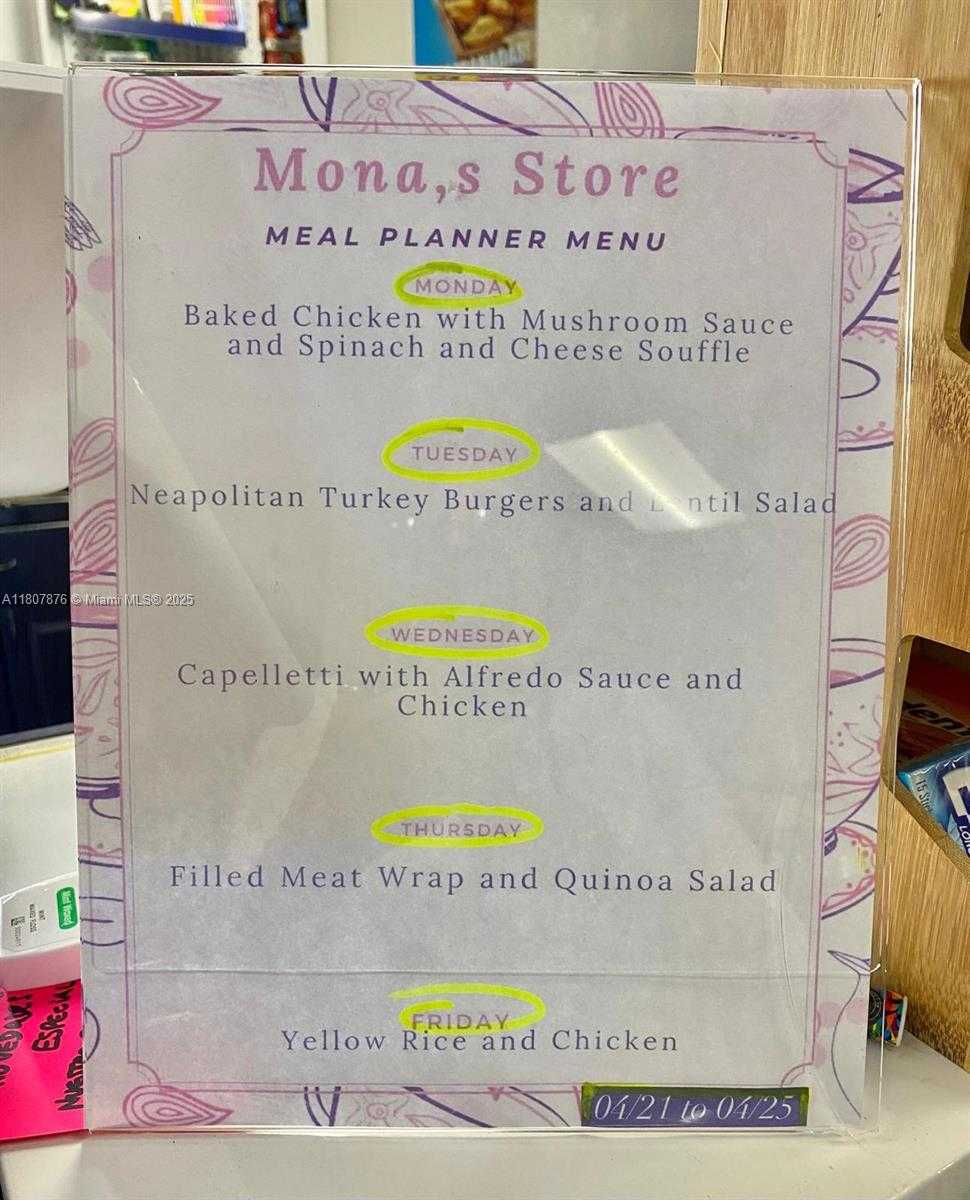 Mona,s Store
MEAL PLANNER MENU
MONDAY
Baked Chicken with Mushroom Sauce
and Spinach and Cheese Souffle
TUESDAY
Neapolitan Turkey Burgers and Lentil Salad
A11807876 © Miami MLS® 2025
WEDNESDAY
Capelletti with Alfredo Sauce and
Chicken
THURSDAY
Filled Meat Wrap and Quinoa Salad
FRIDAY
Yellow Rice and Chicken
04/21 to 04/25